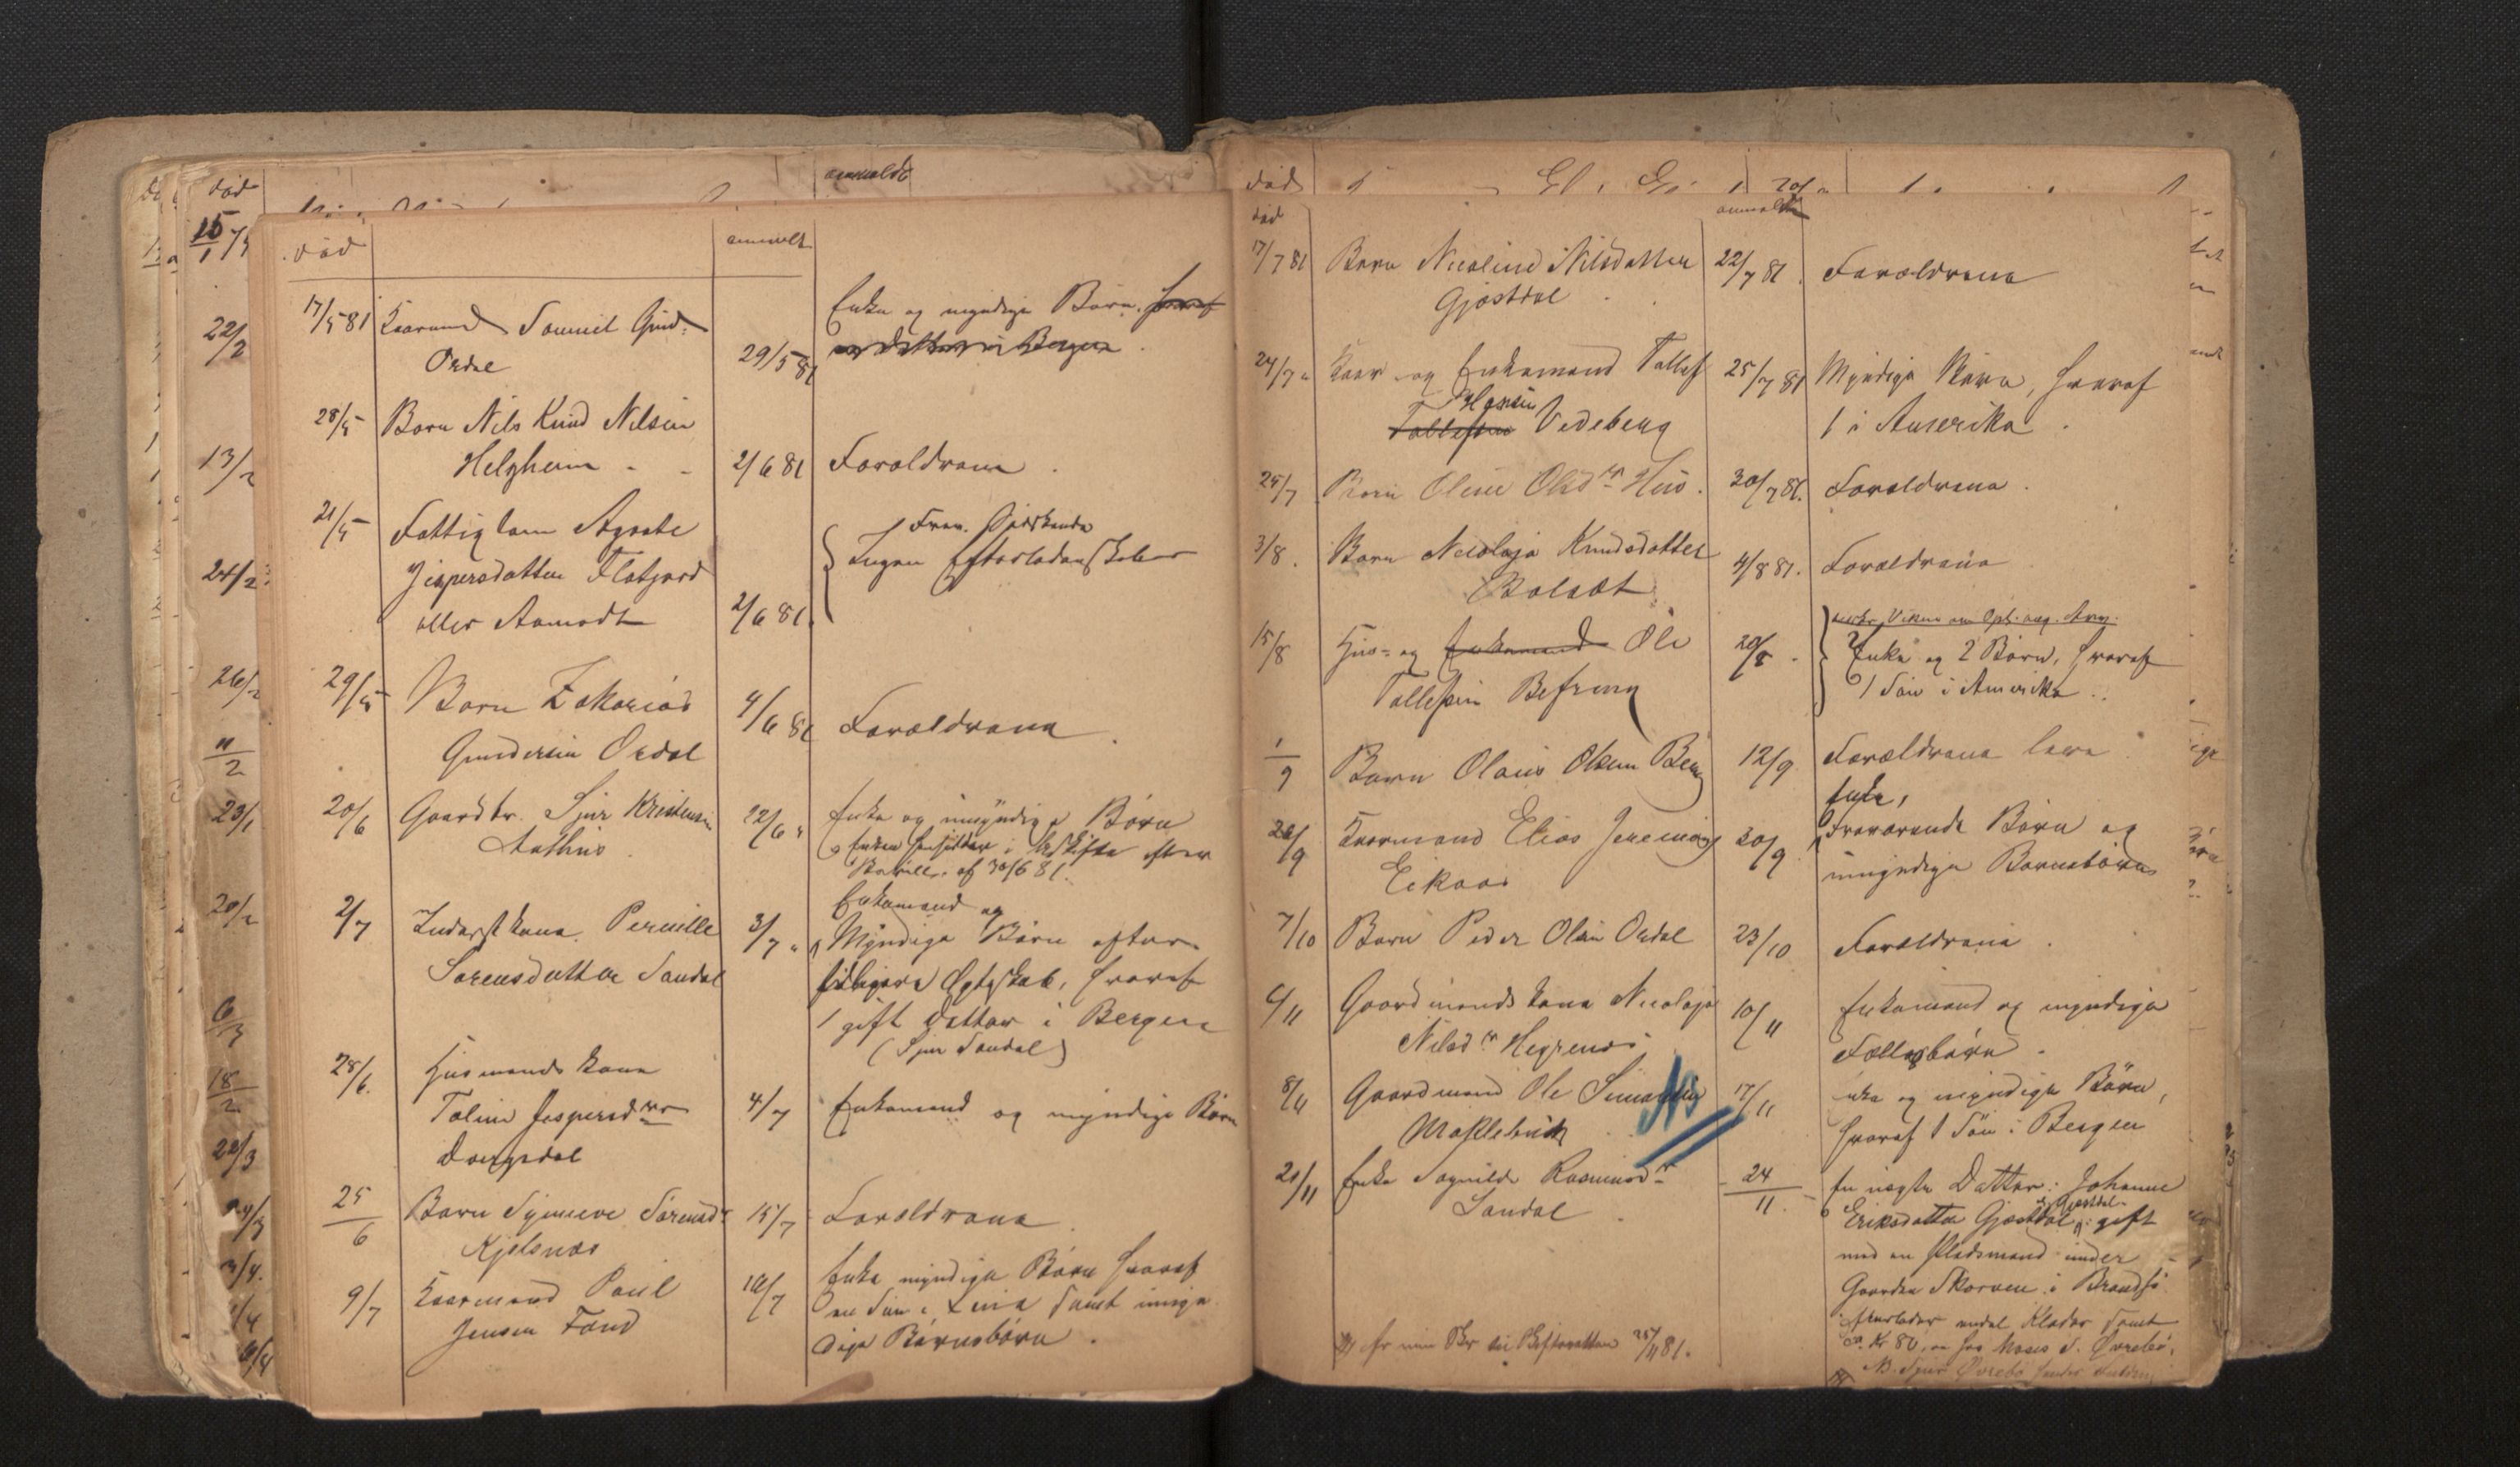 død
anmeldt
17/5 81 Kaarmand Samuel Gund-
Ordal
29/5 81
Enke og myndige Børn. hvoraf
en datter i Bergen
28/5 Barn Nils Knud Nilsen
Helgheim 2/6 81 Forældrene
21/5 Fattiglem Agathe
Jespersdatter Flatjord
eller Aamodt 2/6 81
Ingen Efterladenskaber
29/5 Barn Zakarias
Gundersen Ordal 4/6 81 Forældrene
20/6 Gaardbr. Sjur Kristensen
Aathus
22/6 Enke og umyndige Børn
Enken hensidder i uskifte efter
Bevill. af 30/6 81.
2/7 Inderstkone Pernille
Sørensdatter Sandal
3/7 Enkemand og
Myndige Børn efter
tidligere Ægteskab, hvoraf
1 gift Datter i Bergen
(Sjur Sandal)
28/6 Husmandskone
Taline Jespersdtr
Dvergsdal
4/7 Enkemand og myndige Børn
25/6 Barn Synneve Sørensdr
Kjelsnes 15/7 Forældrene
9/7 Kaarmand Poul
Jensen Fond
10/7 Enke myndige Børn hvoraf
en Søn i Leira samt umyn-
dige Børnebørn
død
anmeldt
17/7 81 Barn Nicoline Nilsdatter
Gjøstdal 22/7 81 Forældrene
24/7 Kaar- og Enkemand Tollef
Hansen
Tollefsen Vedeberg
25/7 81 Myndige Børn, hvoraf
1 i Amerika
25/7 Barn Oline Olsdtr Hus. 30/7 81. Forældrene
3/8. Barn Nicoloja Knudsdatter
Bolsæt 4/8 81. Forældrene
15/8 Hus- og Enkemand Ole
Tollefsen Befring
20/8
Enke og 2 Børn, hvoraf
1 Søn i Amerika
1/9 Barn Olaus Olsen Berg 12/9 Forældrene leve
26/9 Kaarmand Elias Jeremias
Eikaas
30/9 Enke,
Fraværende Børn og
umyndige Barnebørn
7/10 Barn Peder Olsen Ordal 23/10 Forældrene
6/11 Gaardmandskone Nicoloja
Nilsdtr Hegrenes
10/11 Enkemand og myndige
Fællesbørn
8/11 Gaardmand Ole Simonsen
Møklebust
NB
17/11 Enke og myndige Børn,
hvoraf 1 Søn i Bergen
21/11 Enke Sognilde Rasmusdr
Sandal
24/11 En uægte Datter: Johanne
Eriksdatter Gjøstdal, gift
med en Pladsmand under
Gaarden Skorven i Brandsø
efterlader endel Klæder samt
Kr 80, en hos Moses S. Øvrebø.
NB. Sjur Øvrebø
25/11 81.